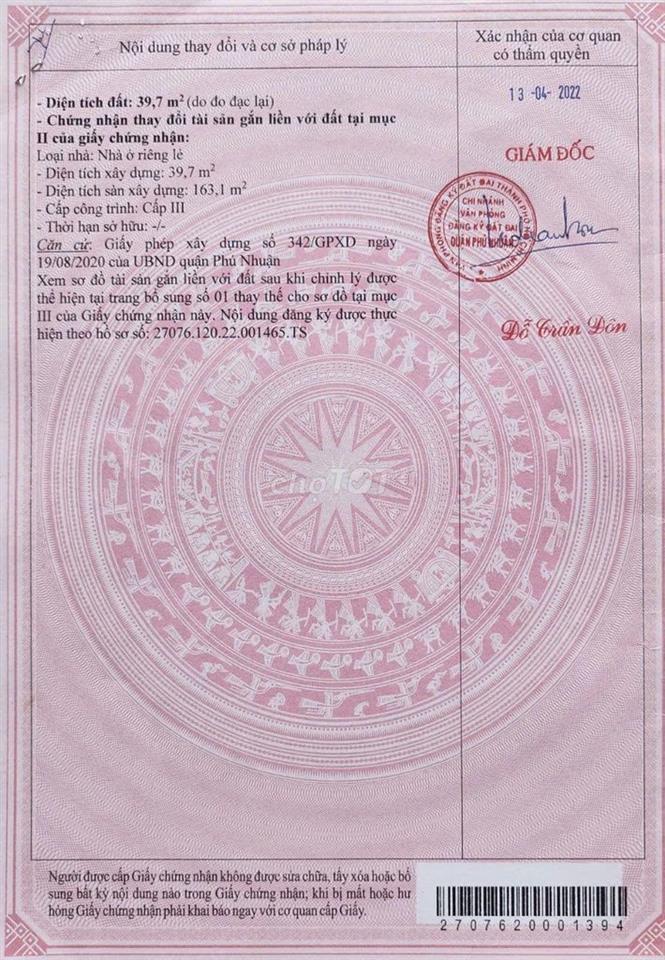 Nội dung thay đổi và cơ sở pháp lý
Xác nhận của cơ quan
có thẩm quyền
- Diện tích đất: 39,7 m² (do đo đạc lại)
- Chứng nhận thay đổi tài sản gắn liền với đất tại mục
II của giấy chứng nhận:
Loại nhà: Nhà ở riêng lẻ
- Diện tích xây dựng: 39,7 m²
- Diện tích sàn xây dựng: 163,1 m²
- Cấp công trình: Cấp III
- Thời hạn sở hữu: -/-
Căn cứ: Giấy phép xây dựng số 342/GPXD ngày
19/08/2020 của UBND quận Phú Nhuận
Xem sơ đồ tài sản gắn liền với đất sau khi chỉnh lý được
thể hiện tại trang bổ sung số 01 thay thế cho sơ đồ tại mục
III của Giấy chứng nhận này. Nội dung đăng ký được thực
hiện theo hồ sơ số: 27076.120.22.001465.TS
13-04-2022
GIÁM ĐỐC
VĂN PHÒNG ĐĂNG KÝ ĐẤT ĐAI THÀNH PHỐ HỒ CHÍ MINH
CHI NHÁNH
VĂN PHÒNG
ĐĂNG KÝ ĐẤT ĐAI
QUẬN PHÚ NHUẬN
Đỗ Trần Đôn
chợTỐT
Người được cấp Giấy chứng nhận không được sửa chữa, tẩy xóa hoặc bổ
sung bất kỳ nội dung nào trong Giấy chứng nhận; khi bị mất hoặc hư
hỏng Giấy chứng nhận phải khai báo ngay với cơ quan cấp Giấy.
2707620001394